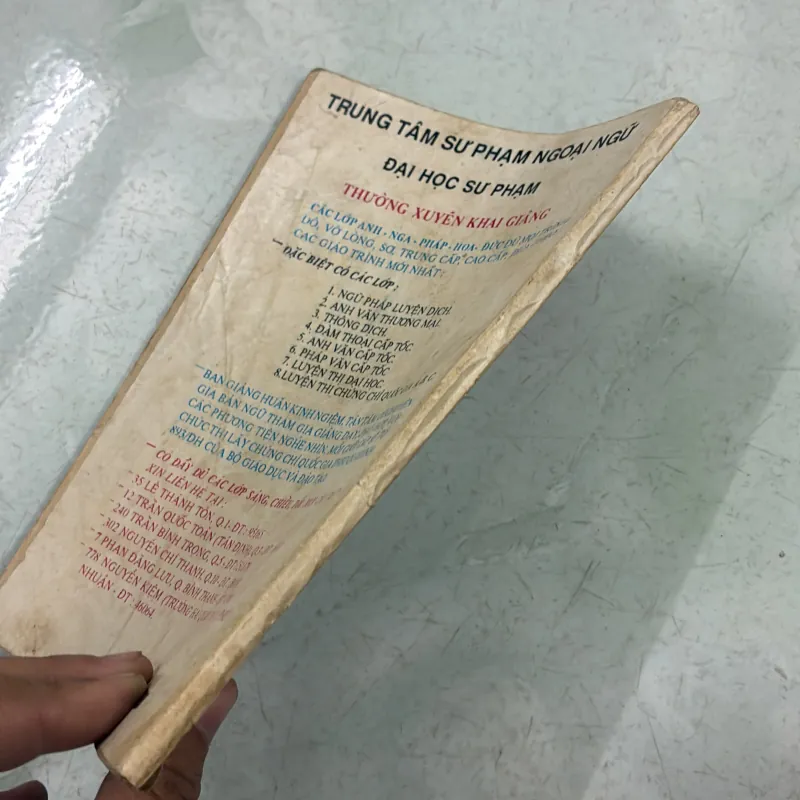 TRUNG TÂM SƯ PHẠM NGOẠI NGỮ
ĐẠI HỌC SƯ PHẠM
THƯỜNG XUYÊN KHAI GIẢNG
CÁC LỚP ANH - NGA - PHÁP - HOA - ĐỨC ĐỦ MỌI TRÌNH
ĐỘ, VỠ LÒNG, SƠ, TRUNG CẤP, CAO CẤP,
CÁC GIÁO TRÌNH MỚI NHẤT:
— ĐẶC BIỆT CÓ CÁC LỚP:
1. NGỮ PHÁP LUYỆN DỊCH.
2. ANH VĂN THƯƠNG MẠI.
3. THÔNG DỊCH.
4. ĐÀM THOẠI CẤP TỐC.
5. ANH VĂN CẤP TỐC
6. PHÁP VĂN CẤP TỐC
7. LUYỆN THI ĐẠI HỌC.
8. LUYỆN THI CHỨNG CHỈ QUỐC GIA A B C
— BAN GIẢNG HUẤN KINH NGIỆM, TẬN TÂM
GIA BẢN NGỮ THAM GIA GIẢNG DẠY,
CÁC PHƯƠNG TIỆN NGHE NHÌN MỚI
CHỨC THI LẤY CHỨNG CHỈ QUỐC GIA
893/DH CỦA BỘ GIÁO DỤC VÀ ĐÀO TẠO.
— CÓ ĐẦY ĐỦ CÁC LỚP SÁNG, CHIỀU,
XIN LIÊN HỆ TẠI:
- 35 LÊ THÁNH TÔN, Q.1 - ĐT:
- 12 TRẦN QUỐC TOẢN (TÂN ĐỊNH), Q.3
- 240 TRẦN BÌNH TRỌNG, Q.5 - ĐT:
- 302 NGUYỄN CHÍ THANH, Q.10 - ĐT:
- 7 PHAN ĐĂNG LƯU, Q. BÌNH THẠNH
- 778 NGUYỄN KIỆM (TRƯỜNG
NHUẬN - ĐT: 46064